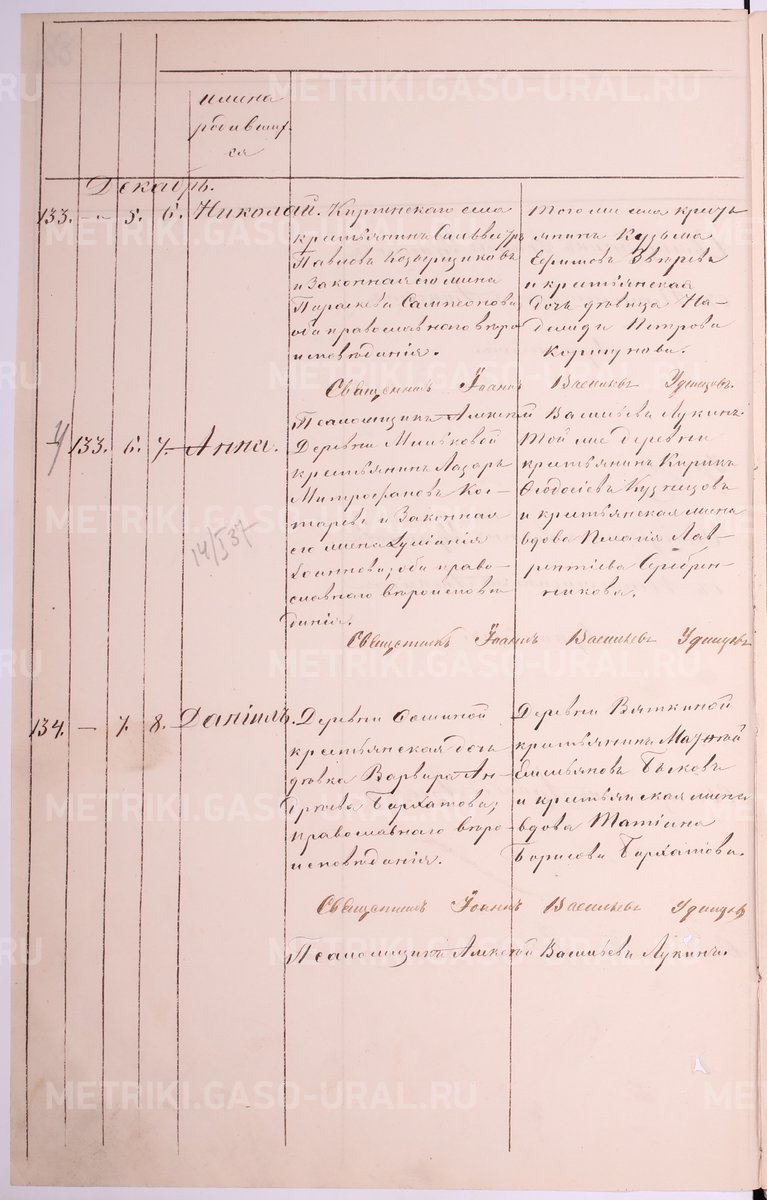 имена
родивших-
ся
Декабрь.
133. — 5. 6. Николай. Киргинскаго села
крестьянинъ Сильвестръ
Павловъ
и законная его жена
Параскева Сампсонова,
оба православнаго вѣро
исповѣданія.
Того же села кресть
янинъ Кузьма
Ефимовъ Звѣревъ
и крестьянская
дочь дѣвица На-
дежда Петрова
Коршунова.
Священникъ Іоаннъ Васильевъ Удинцевъ.
Псаломщикъ Алексѣй Васильевъ Лукинъ
133. 6. 7. Анна.
14/I 37
Деревни Мильковой
крестьянинъ Лазарь
Митрофановъ Кос-
таревъ и законная
его жена
Іоаннова; оба право-
славнаго вѣроисповѣ
данія.
Той же деревни
крестьянинъ Кирикъ
Ѳеодосіевъ Кузнецовъ
и крестьянская жена
вдова Пелагія Лав-
рентіева Серебрен-
никова.
Священникъ Іоаннъ Васильевъ Удинцевъ
134. — 7. 8. Даніилъ.
Деревни
крестьянская дочь
дѣвка Варвара Ан-
дреева Бархатова;
православнаго вѣро
исповѣданія.
Деревни Вяткиной
крестьянинъ
Емельяновъ Быковъ
и крестьянская жена
вдова Татіана
Борисова Бархатова.
Священникъ Іоаннъ Васильевъ Удинцевъ
Псаломщикъ Алексѣй Васильевъ Лукинъ.
METRIKI.GASO-URAL.RU